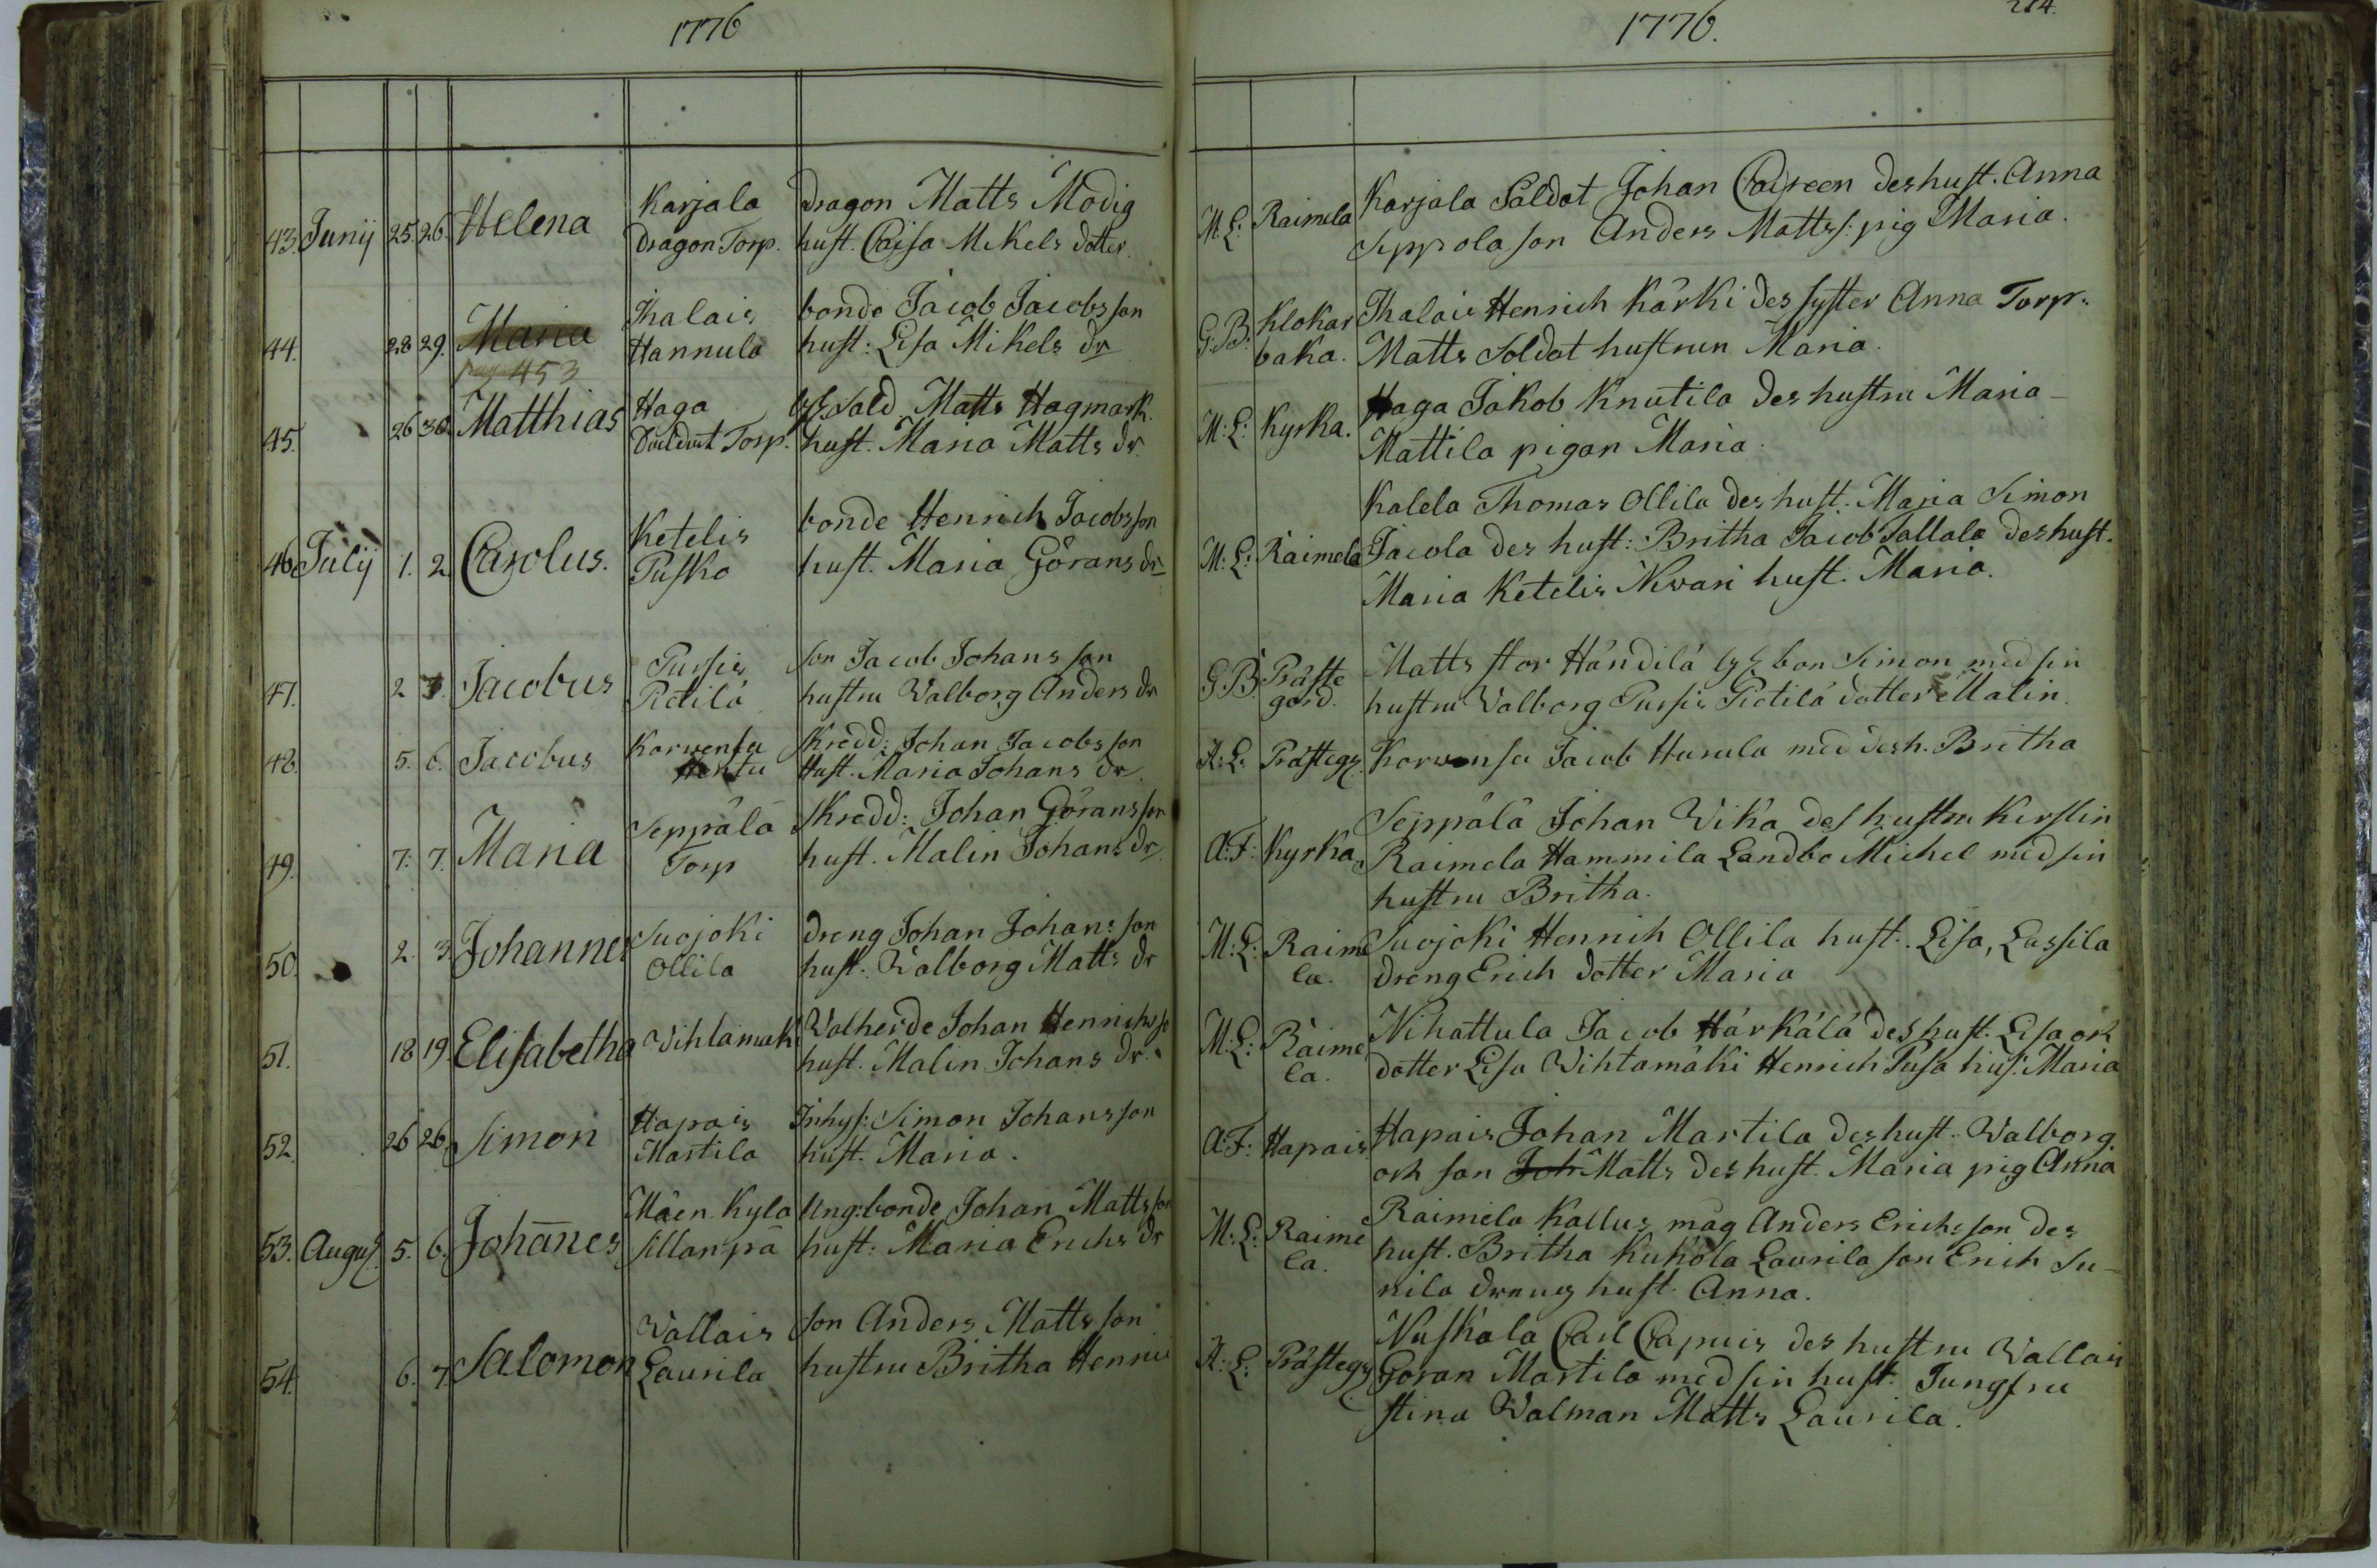 1776
43. Junij 25 26. Helena Karjala Dragon Matts Modig
Dragon Torp. hust. Caisa Mikels dotter.
44. 28 29. Maria Ihalais bonde Jacob Jacobsson
Hannula hust: Lisa Mikels dr
453
45. 26 30 Matthias Haga Sold Matts Hagmark.
Torp. hust. Maria Matts dr.
46 Julij 1. 2. Carolus. Ketelis bonde Henrich Jacobsson
Pusko hust. Maria Görans dr
47. 2 3. Jacobus Pursis Son Jacob Johansson
Pietilä hustru Walborg Anders dr
48. 5. 6. Jacobus Korwensu Skredd: Johan Jacobsson
Hust. Maria Johans dr.
49. 7. 7. Maria Seppälä Skredd: Johan Göransson
Torp hust. Malin Johans dr
50. 2. 3. Johannes Suojoki Dreng Johan Johansson
Ollila hust: Walborg Matts dr
51. 18 19 Elisabetha Wihtamäk Walherde Johan Henrichss
hust. Malin Johans dr.
52. 26 26. Simon Hapais Inhys: Simon Johansson
Martila hust. Maria.
53. August 5. 6. Johannes Mäen Kyla Ung:bonde Johan Mattsson
Sillanpä hust: Maria Erichs dr
54. 6. 7. Salomon Wallais Son Anders Mattsson
Laurila hustru Britha Henric
1776.
214.
M: L: Raimela Karjala Saldat Johan Caireen des hust. Anna
Seppola son Anders Matts: pig Maria.
G:B: Klokar Ihalais Henrich Kärki des syster Anna Torp:
baka. Matts Soldat hustrun Maria.
M: L: Kyrka. Haga Jakob Knutila des hustru Maria
Mattila pigan Maria.
Kalela Thomas Ollila des hust. Maria Simon
M: L: Raimela Jacola des hust: Britha Jacob Tallala des hust.
Maria Ketelis Nwari hust. Maria.
G:B: Präste Matts stor Händilä bon Simon med sin
gård. hustru Walborg Pursis Pietilä dotter Malin.
A: L: Prästeg Korwensu Jacob Hurula med des h. Britha
Seppälä Johan Wika des hustru Kirstin
A:F: Kyrka Raimela Hammila Landbo Michel med sin
hustru Britha.
M: L: Raime Suojoki Henrich Ollila hust. Lisa, Lassila
la. dreng Erich dotter Maria
M: L: Raime Nihattula Jacob Härkälä des hust. Lisa och
la. dotter Lisa Wihtamäki Henrich Pusa hus: Maria
A:F: Hapais Hapais Johan Martila des hust. Walborg
och son Joh Matts des hust. Maria pig Anna
Raimela Kallus måg Anders Erichsson des
M: L: Raime hust. Britha Kukola Laurila son Erich Su-
la. nila dreng hust. Anna.
Nuskala Carl Capuis des hustru Wallais
A: L: Prästeg Göran Martila med sin hust. Jungfru
Stina Walman Matts Laurila.